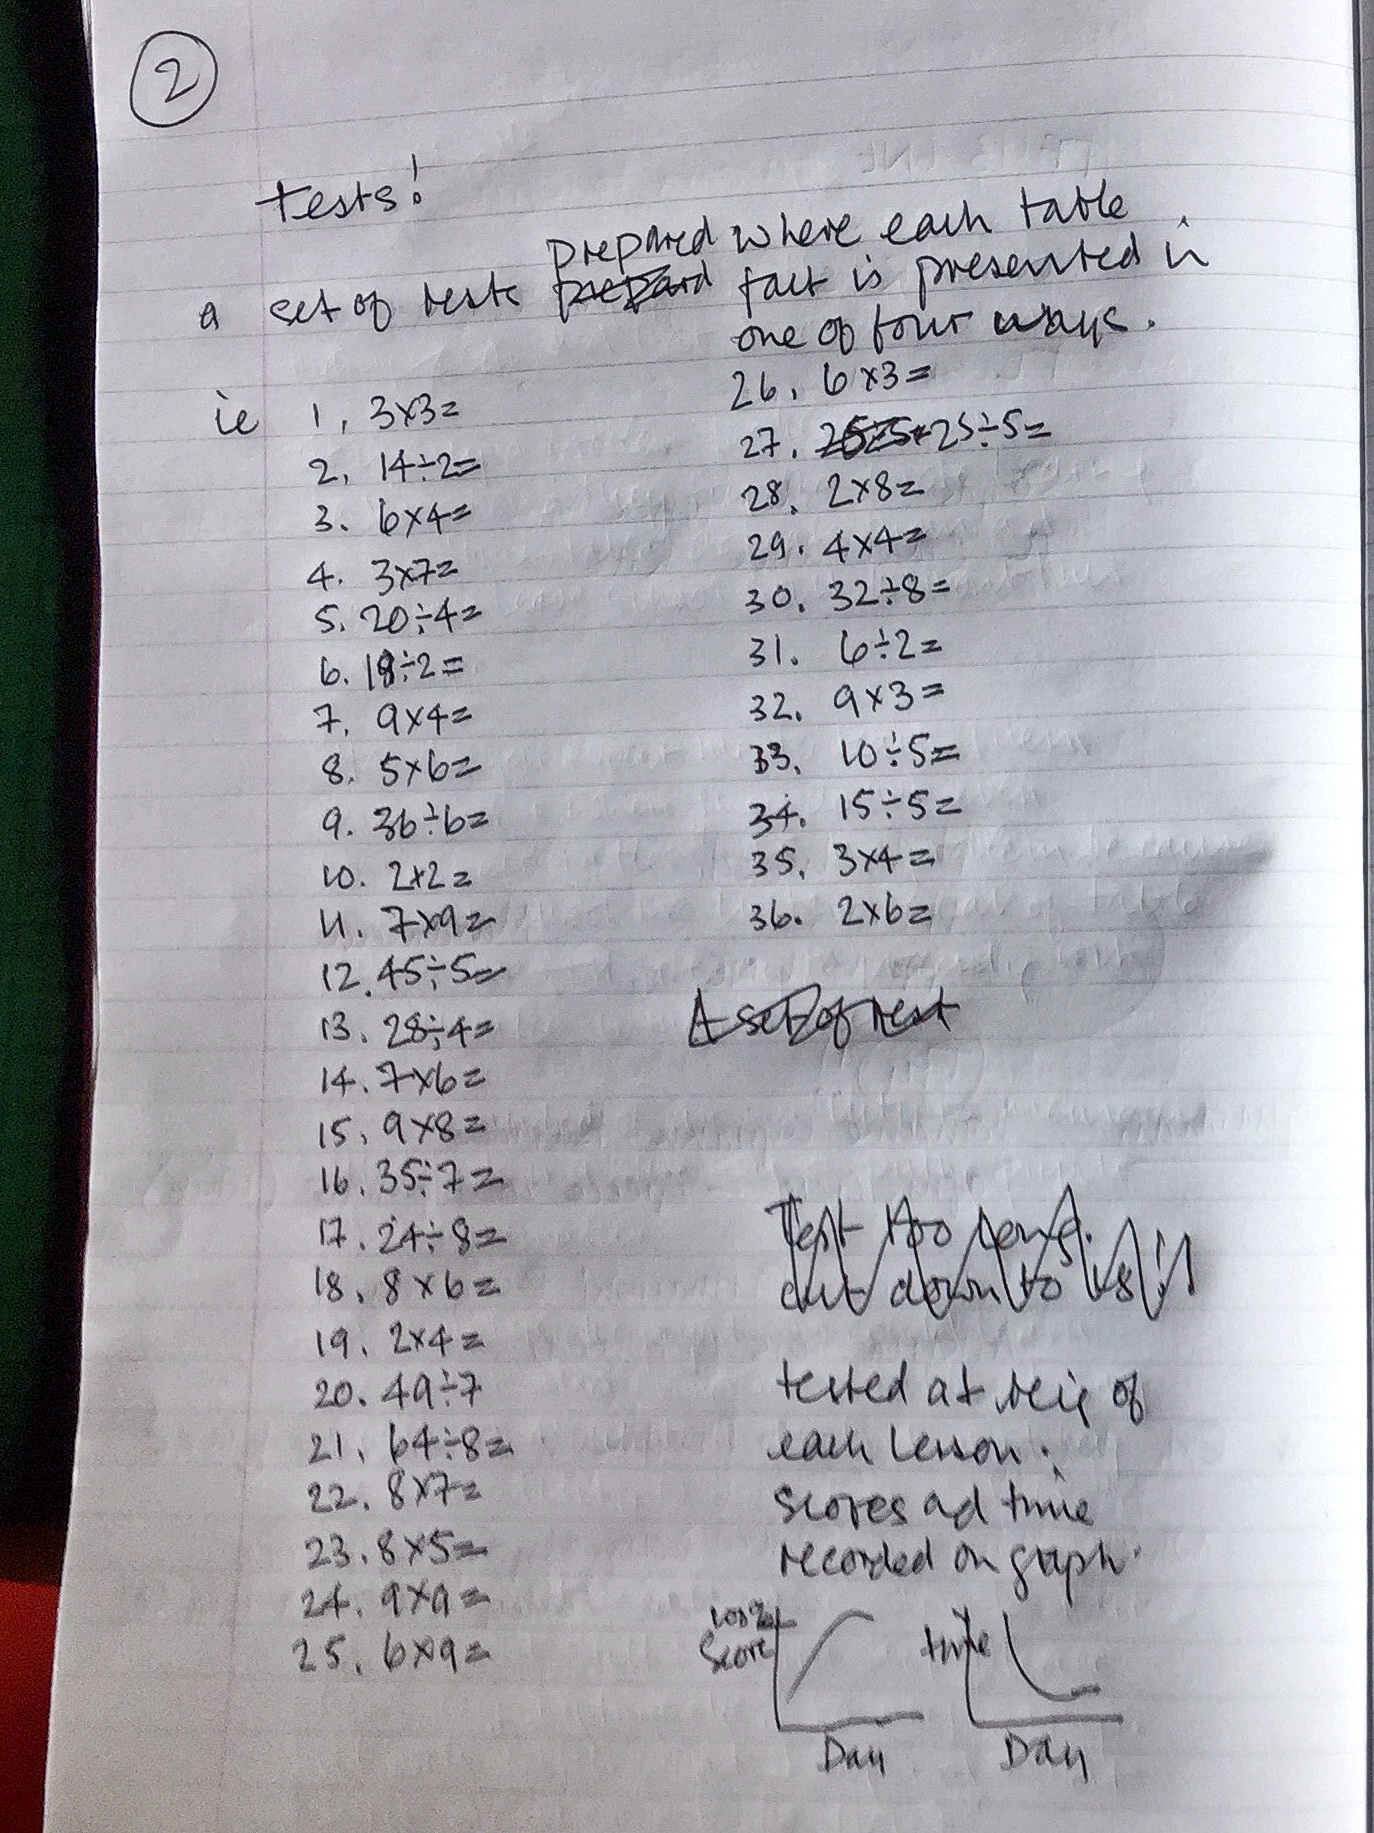 2
Tests!
a set of tests prepared where each table
fact is presented in
one of four ways.
ie 1, 3×3=
2, 14÷2=
3. 6×4=
4. 3×7=
5. 20÷4=
6. 18÷2=
7, 9×4=
8. 5×6=
9. 36÷6=
10. 2×2=
11. 7×9=
12. 45÷5=
13. 28÷4=
14. 7×6=
15, 9×8=
16. 35÷7=
17. 24÷8=
18, 8×6=
19, 2×4=
20. 49÷7
21, 64÷8=
22, 8×7=
23. 8×5=
24. 9×9=
25. 6×9=
26, 6×3=
27. 25÷5=
28. 2×8=
29. 4×4=
30. 32÷8=
31. 6÷2=
32. 9×3=
33, 10÷5=
34. 15÷5=
35, 3×4=
36. 2×6=
A set of test
Test too long.
cut down to 18!!
tested at of
each lesson.
scores ad time
recorded on graph.
100%
Score
Day
time
Day